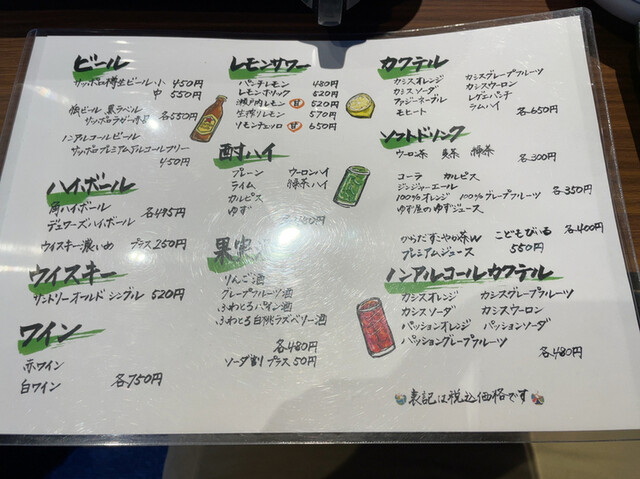 ビール
サッポロ樽生ビール・小 450円
中 550円
瓶ビール 黒ラベル
サッポロラガー赤星 各550円
ノンアルコールビール
サッポロプレミアムアルコールフリー
450円
ハイボール
角ハイボール
デュワーズハイボール 各495円
ウイスキー濃いめ プラス250円
ウイスキー
サントリーオールド シングル 520円
ワイン
赤ワイン
白ワイン 各750円
レモンサワー
パンチレモン 480円
レモンホリック 520円
瀬戸内レモン 甘 520円
生搾りレモン 570円
リモンチェッロ 甘 650円
酎ハイ
プレーン ウーロンハイ
ライム 緑茶ハイ
カルピス
ゆず
果実
りんご酒
グレープフルーツ酒
ふわとろパイン酒
ふわとろ白桃ラズベリー酒
各480円
ソーダ割りプラス50円
カクテル
カシスオレンジ カシスグレープフルーツ
カシスソーダ カシスウーロン
ファジーネーブル レゲエパンチ
モヒート ラムハイ
各650円
ソフトドリンク
ウーロン茶 爽茶 緑茶
各300円
コーラ カルピス
ジンジャーエール
100%オレンジ 100%グレープフルーツ
ゆず屋のゆずジュース 各350円
からだすこやか茶W こどもびいる 各400円
プレミアムジュース 550円
ノンアルコールカクテル
カシスオレンジ カシスグレープフルーツ
カシスソーダ カシスウーロン
パッションオレンジ パッションソーダ
パッショングレープフルーツ
各480円
表記は税込価格です